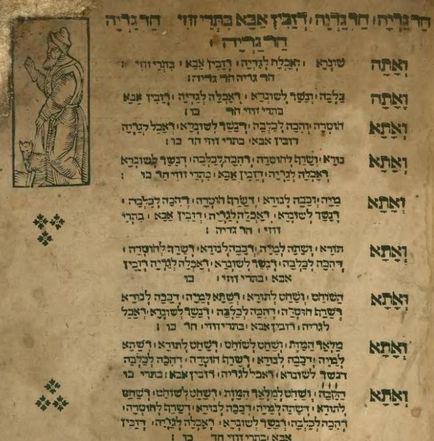 חד גדיה׃ חד גדיה׃ דזבין אבא בתרי זוזי חד גדיה
חד גדיה׃
ואתה שונרא ואכלה לגדיה׃ דזבין אבא׃ בתרי זוזי׃
חד גדיה חד גדיה׃
ואתה כלבה׃ ונשך לשונרא׃ דאכלה לגדיה׃ דזבין אבא
בתרי זוזי חד כו׃
ואתא חוטרה׃ והכה לכלבה׃ דנשך לשונרא׃ דאכל לגדיה
דזבין אבא׃ בתרי זוזי חד גדיה׃
ואתא נורא׃ ושרף לחוטרה׃ דהכה לכלבה׃ דנשך לשונרא
דאכלה לגדיה׃ דזבין אבא׃ בתרי זוזי חד כו׃
ואתא מייה׃ וכבה לנורא׃ דשרף חוטרה׃ דהכה לכלבה׃
דנשך לשונרא׃ דאכלה לגדיה דזבין אבא׃ בתרי
זוזי׃ חד גדיה׃
ואתא תורא׃ ושתה למייה׃ דכבה לנורא׃ דשרף לחוטרה׃
דהכה לכלבה׃ דנשך לשונרא׃ דאכלה לגדיה דזבין
אבא׃ בתרי זוזי׃ כו׃
ואתא השוחט׃ ושחט לתורא׃ דשתא למייה׃ דכבה לנורא׃
דשרף חוטרה׃ דהכה לכלבה׃ דנשך לשונרא דאכל
לגדיה׃ דזבין אבא׃ בתרי זוזי׃ חד כו׃
ואתא מלאך המות׃ ושחט לשוחט׃ דשחט לתורא׃ דשתא
למייה׃ דכבה לנורא׃ דשרף חוטרה׃ דהכה לכלבה
דנשך לשונרא׃ דאכל לגדיה׃ דזבין אבא׃ בתרי כו
ואתא הקבה׃ ושחט למלאך המות׃ דשחט לשוחט׃ דשחט
לתורא׃ דשתה למייה׃ דכבה לנורא׃ דשרף לחוטרה׃
דהכה לכלבה׃ דנשך לשונרא׃ דאכלה לגדיה׃ דזבין
אבא׃ בתרי זוזי חד כו׃